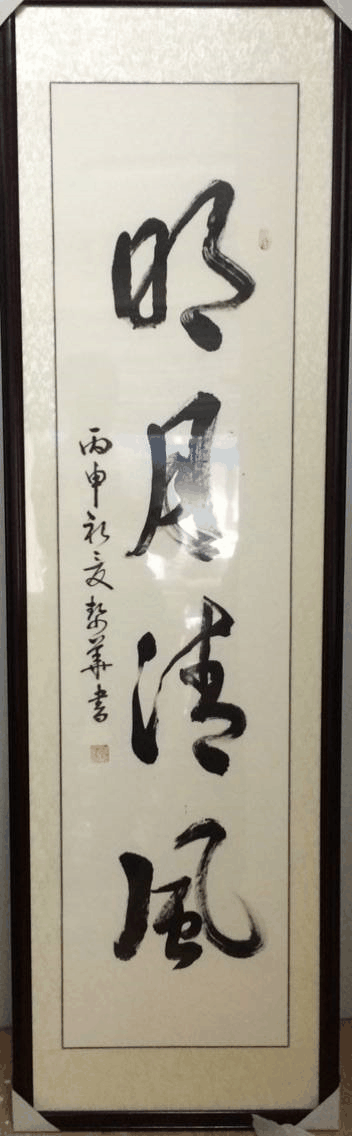 明月清风
丙申初夏 華書